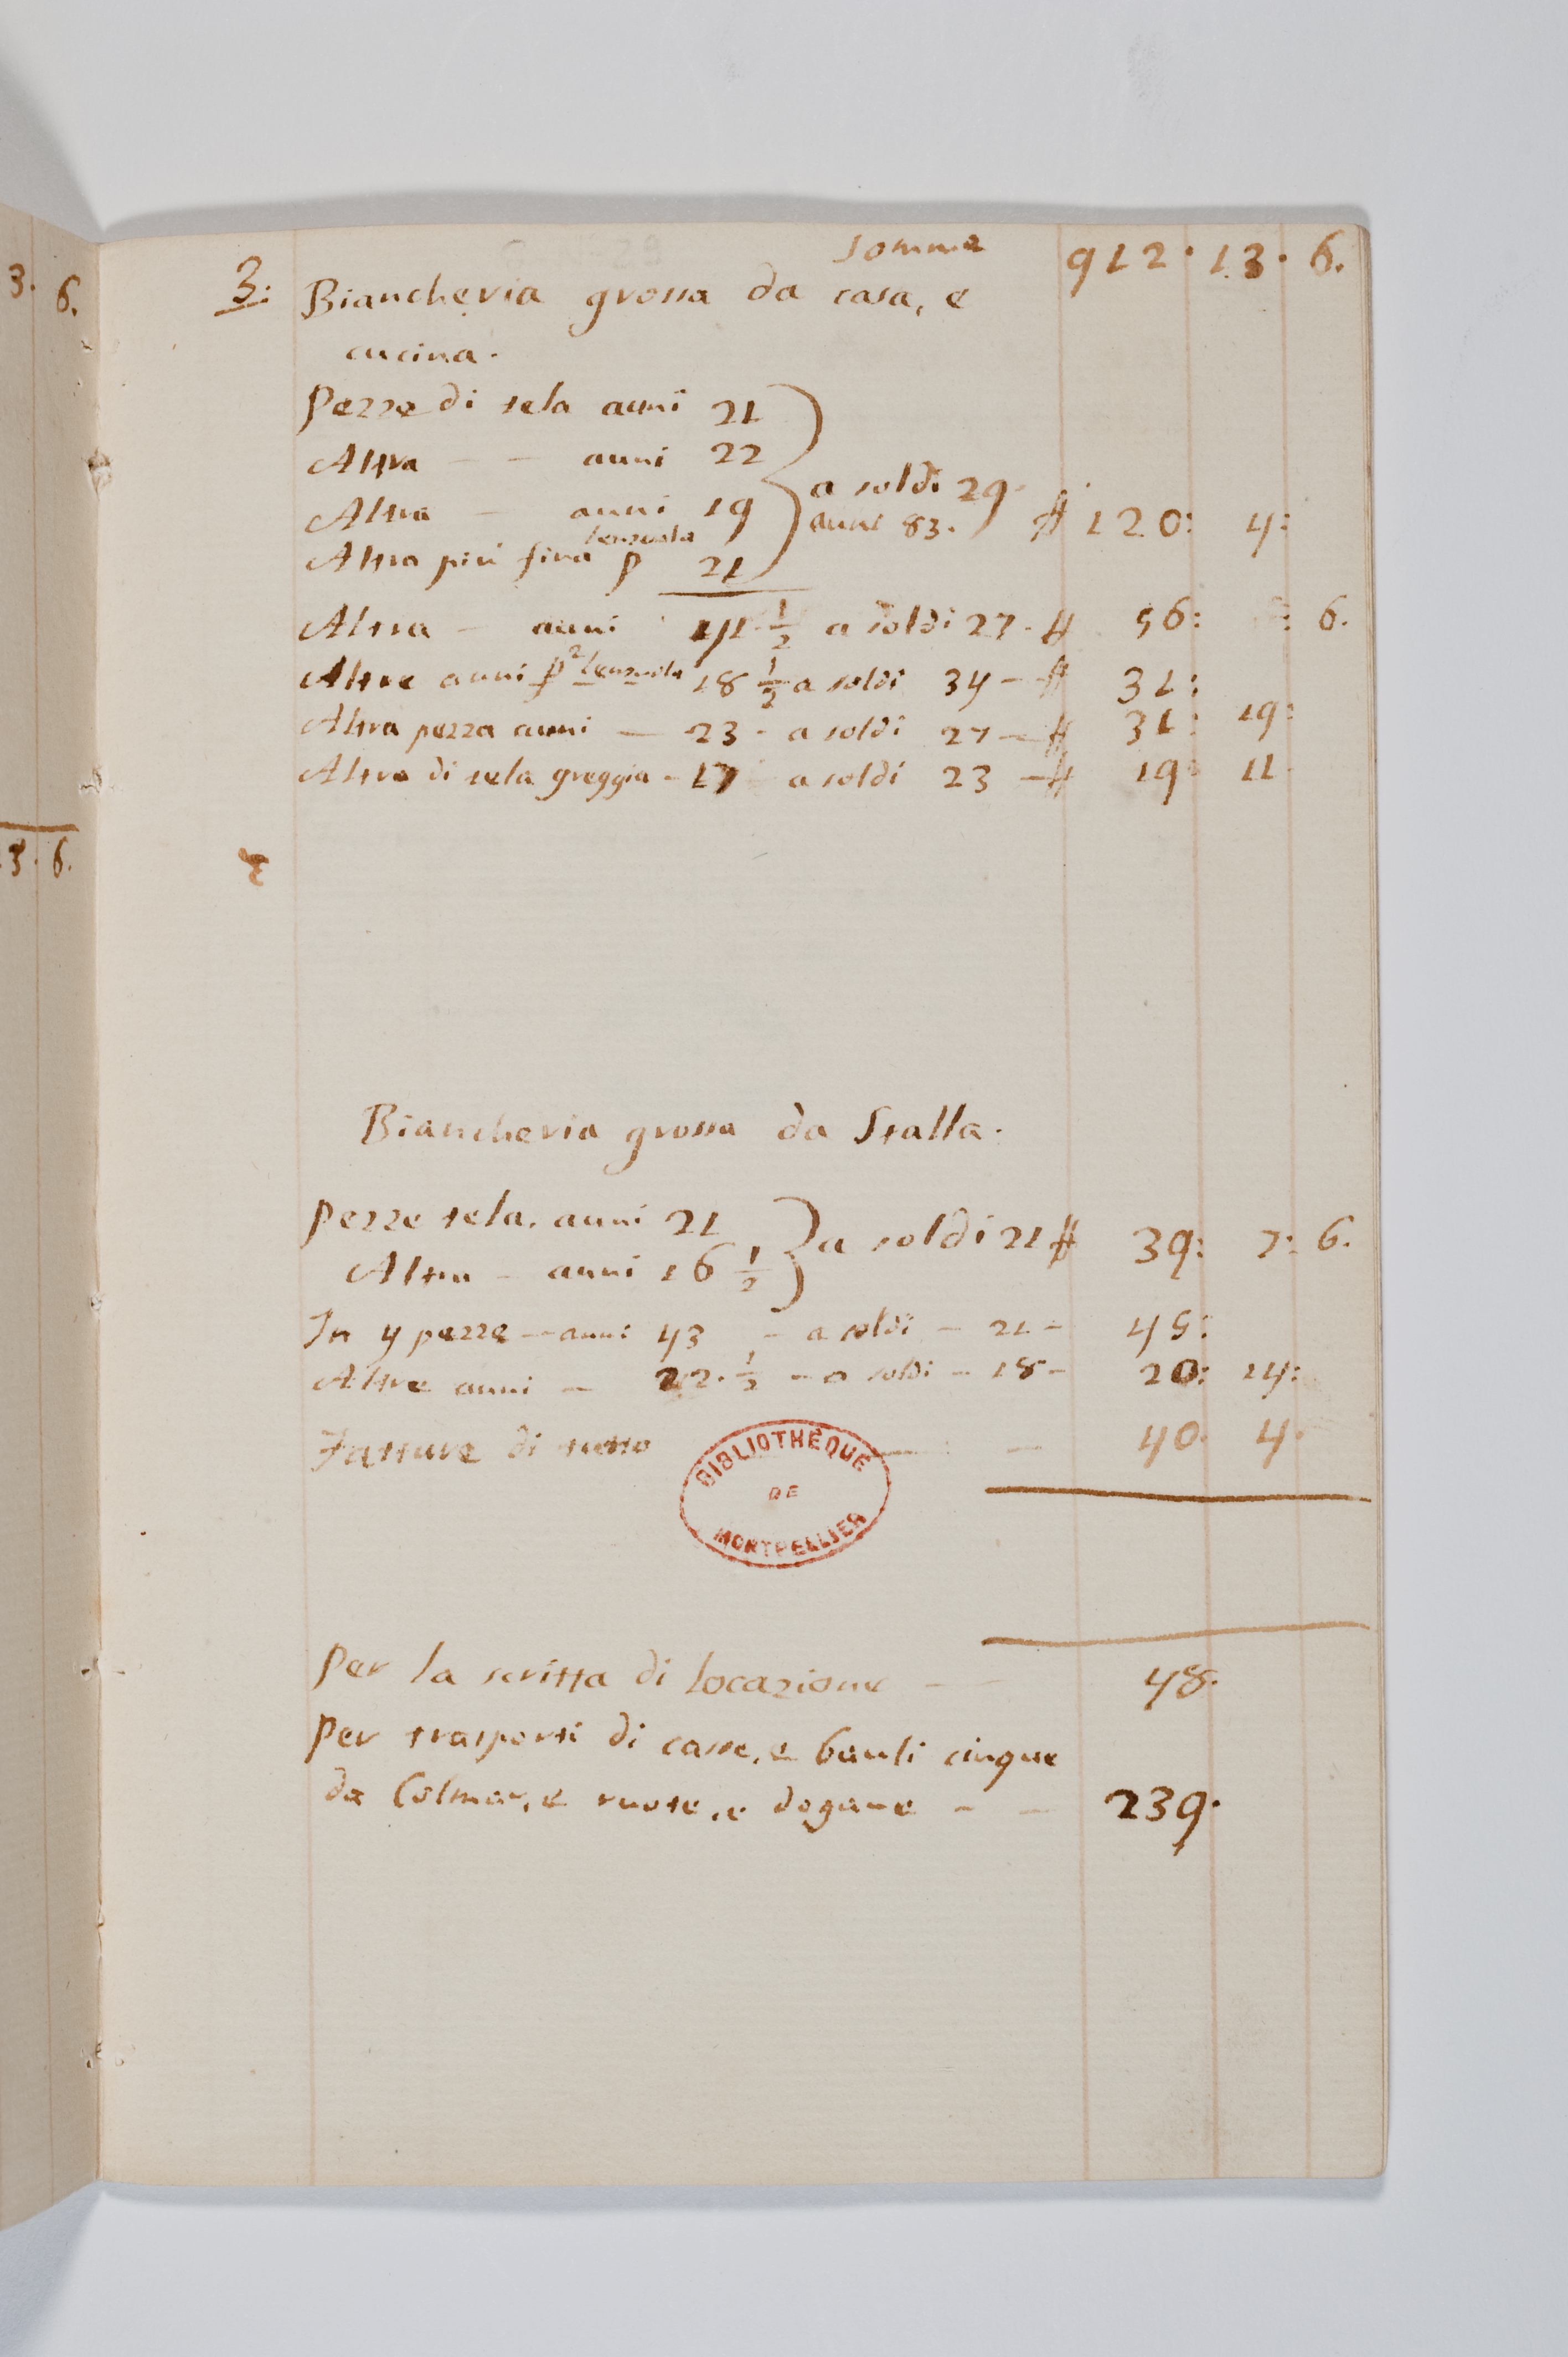 3. 6.
3. 6.
somma 912. 13. 6.
3: Biancheria grossa da casa, e
cucina.
Pezze di tela auni 21
Altra — — auni 22
Altra — auni 19
a soldi 29.
auni 83. ₶ 120: 4:
Altra piu fina p lenzuola 21
Altra — auni 41. 1/2 a soldi 27. ₶ 56: : 6.
Altre auni p 2 lenzuola 18 1/2 a soldi 34 — ₶ 31:
Altra pezza auni — 23 - a soldi 27 — ₶ 31: 19:
Altra di tela greggia - 17 a soldi 23 — ₶ 19: 11.
Biancheria grossa da Stalla.
Pezze tela. auni 21
Altra — auni 16 1/2
a soldi 21 ₶ 39: 7: 6.
In 4 pezze — auni 43 — a soldi — 21 — 45:
Altre auni — 22. 1/2 — a soldi — 18 — 20: 14:
Fatture di tutto — — 40. 4.
BIBLIOTHÈQUE
DE
MONTPELLIER
Per la scritta di locazione — — 48.
Per trasporti di casse, e bauli cinque
da Colmar, e ruote, e dogane — — 239.